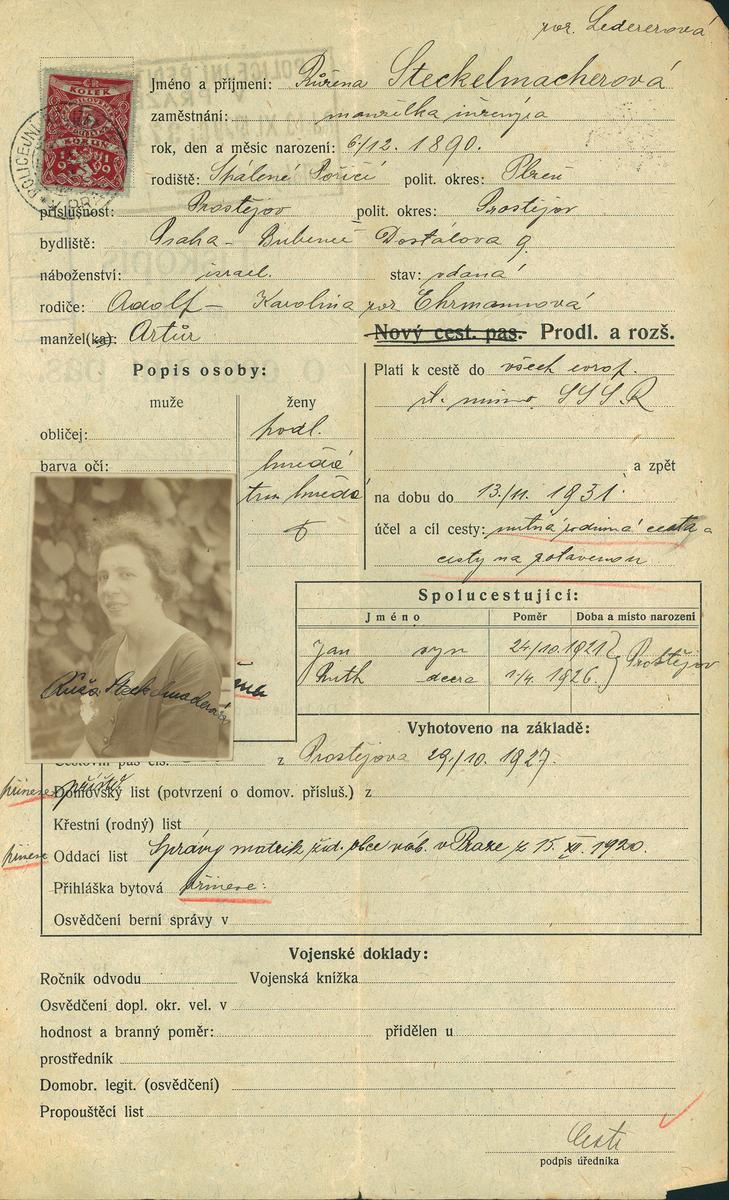 roz. Ledererová
Jméno a příjmení: Růžena Steckelmacherová
zaměstnání: manželka inženýra
rok, den a měsíc narození: 6/12. 1890.
rodiště: Spálené Poříčí polit. okres: Plzeň
příslušnost: Prostějov polit. okres: Prostějov
bydliště: Praha - Bubeneč Dostálova 9.
náboženství: israel. stav: vdaná
rodiče: Adolf - Karolina roz Ehrmannová
manžel(ka): Artůr
Nový cest. pas. Prodl. a rozš.
Popis osoby:
muže ženy
obličej: podl.
barva očí: hnědé
tm hnědé
Platí k cestě do všech evrop.
st. mimo SSSR
a zpět
na dobu do 13/11. 1931.
účel a cíl cesty: nutná rodinná cesta a
cesty na zotavenou
Spolucestující:
Jméno Poměr Doba a místo narození
Jan syn 24/10.1921 } Prostějov
Ruth dcera 1/4. 1926.
Růža Steckelmacherová
Vyhotoveno na základě:
Cestovní pas čís. z Prostějova 29./10. 1927.
přinese příště
Domovský list (potvrzení o domov. přísluš.) z
Křestní (rodný) list
přinese Oddací list Správy matrik žid. obce náb. v Praze z 15. XII. 1920.
Přihláška bytová přinese:
Osvědčení berní správy v
Vojenské doklady:
Ročník odvodu Vojenská knížka
Osvědčení dopl. okr. vel. v
hodnost a branný poměr: přidělen u
prostředník
Domobr. legit. (osvědčení)
Propouštěcí list
podpis úředníka